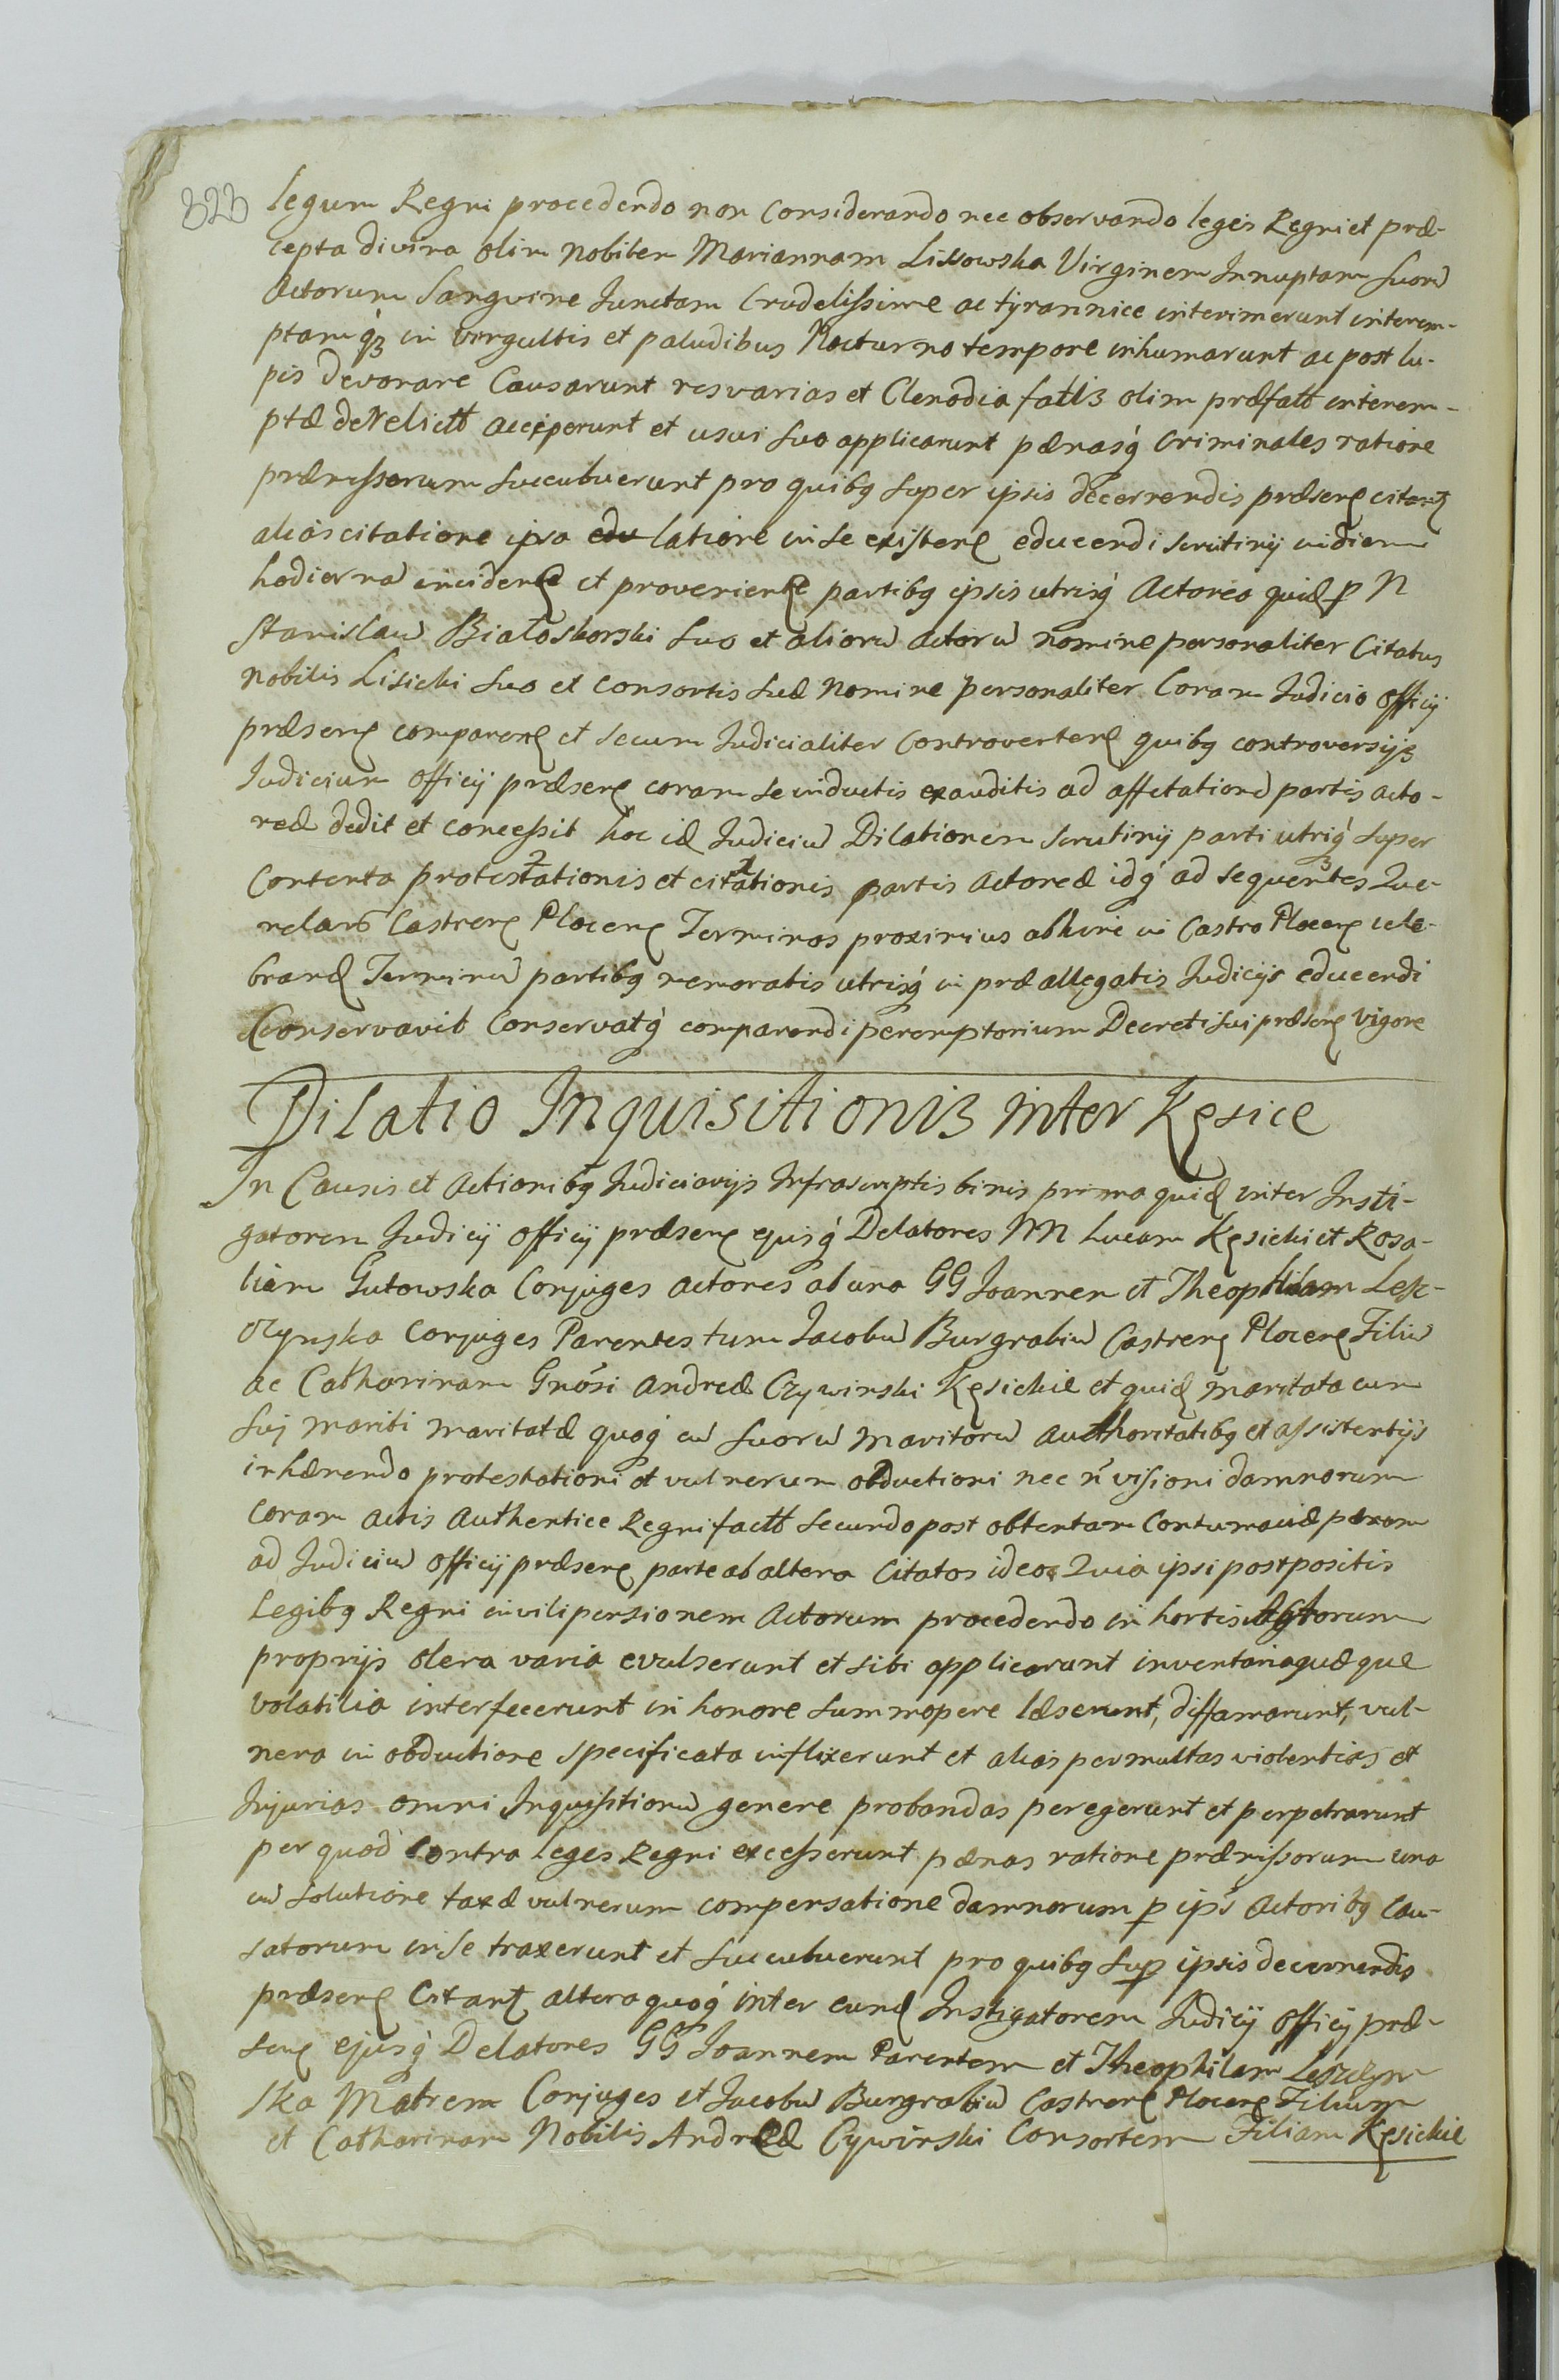 323
legum Regni procedendo non Considerando nec observando leges Regni et præ-
cepta divina olim Nobilem Mariannam Lissowska Virginem Innuptam Suorũ
Actorum Sangvine Junctam Crudelissime ac tyrannice interimerunt interem-
ptamqȝ in virgultis et paludibus Nocturno tempore inhumarunt ac post lu-
pis devorare Causarunt res varias et Clenodia olim præfatt interem-
ptæ derelictt acceperunt et usui suo applicarunt pænasq́ Criminales ratione
præmissorum succubuerunt pro quibq super ipsis decernendis præsenę citantȝ
alias citatione ipsa latiore in se existenę educendi scrutinij in diem
hodiernã incidenę et provenientę partibq ipsis utrisq́ Actorea quidę p N
Stanislaũ Białoskorski Suo et aliorũ actorũ nomine personaliter Citatus
Nobilis Lisicki Suo et Consortis Suæ Nomine personaliter Coram Judicio Officij
præsenę comparenę et secum Judicialiter Controvertenę quibq controversijs
Judicium Officij præsenę coram se inductis exauditis ad affectationẽ partis acto-
reæ dedit et concessit hoc idę Judiciũ Dilationem Scrutinij parti utriq́ super
Contenta protestationis et citationis partis Actoreæ idq́ ad sequentes Que-
relarũ Castrenę Plocenę Terminos proximius abhinc in Castro Plocenę cele-
brandę Terminũ partibq memoratis utrisq́ in præallegatis Judicijs educendi
Conservavit Conservatq́ comparendi peremptorium Decreti sui præsenę Vigore
Dilatio Inquisitionis inter Kęsice
In Causis et Actionibq Judiciarijs Infrascriptis binis prima quidę inter Insti-
gatorem Judicij Officij præsenę ejusq́ Delatores NN Lucam Kęsicki et Rosa-
liam Gutowska Conjuges Actores ab una GG Joannem et Theophilam Lesz-
czynska Conjuges Parentes tum Jacobũ Burgrabiũ Castrenę Plocenę Filiũ
ac Catharinam Gnosi Andreæ Czywinski Kęsickie et quidę maritata cum
sui mariti maritatæ quoq́ cũ Suorũ Maritorũ Authoritatibq et assistentijs
inhærendo protestationi et vulnerum obductioni nec ń visioni damnorum
Coram Actis Authentice Regni factt secundo post obtentam Contumaciæ pænam
ad Judiciũ Officij præsenę parte ab altera Citatos ideo Quia ipsi postpositis
Legibq Regni in vilipensionem Actorum procedendo in hortis Actorum
proprijs olera varia evulserunt et sibi applicarunt inventaria quæque
volatilia interfecerunt in honore summopere læserunt, diffamarunt, vul-
nera in obductione specificata inflixerunt et alias permultas violentias et
Injurias omni Inquisitionũ genere probandas peregerunt et perpetrarunt
per quod Contra leges Regni excesserunt pænas ratione præmissorum una
cũ solutione taxæ vulnerum compensatione damnorum p ips Actoribq Cau-
satorum in se traxerunt et succubuerunt pro quibq sup ipsis decernendis
præsenę Citantȝ altera quoq́ inter eundę Instigatorem Judicij Officij præ-
senę ejusq́ Delatores GG Joannem Parentem et Theophilam Leszczyn-
ska Matrem Conjuges et Jacobũ Burgrabiũ Castrenę Plocenę Filium
et Catharinam Nobilis Andreæ Cywinski Consortem Filiam Kęsickie